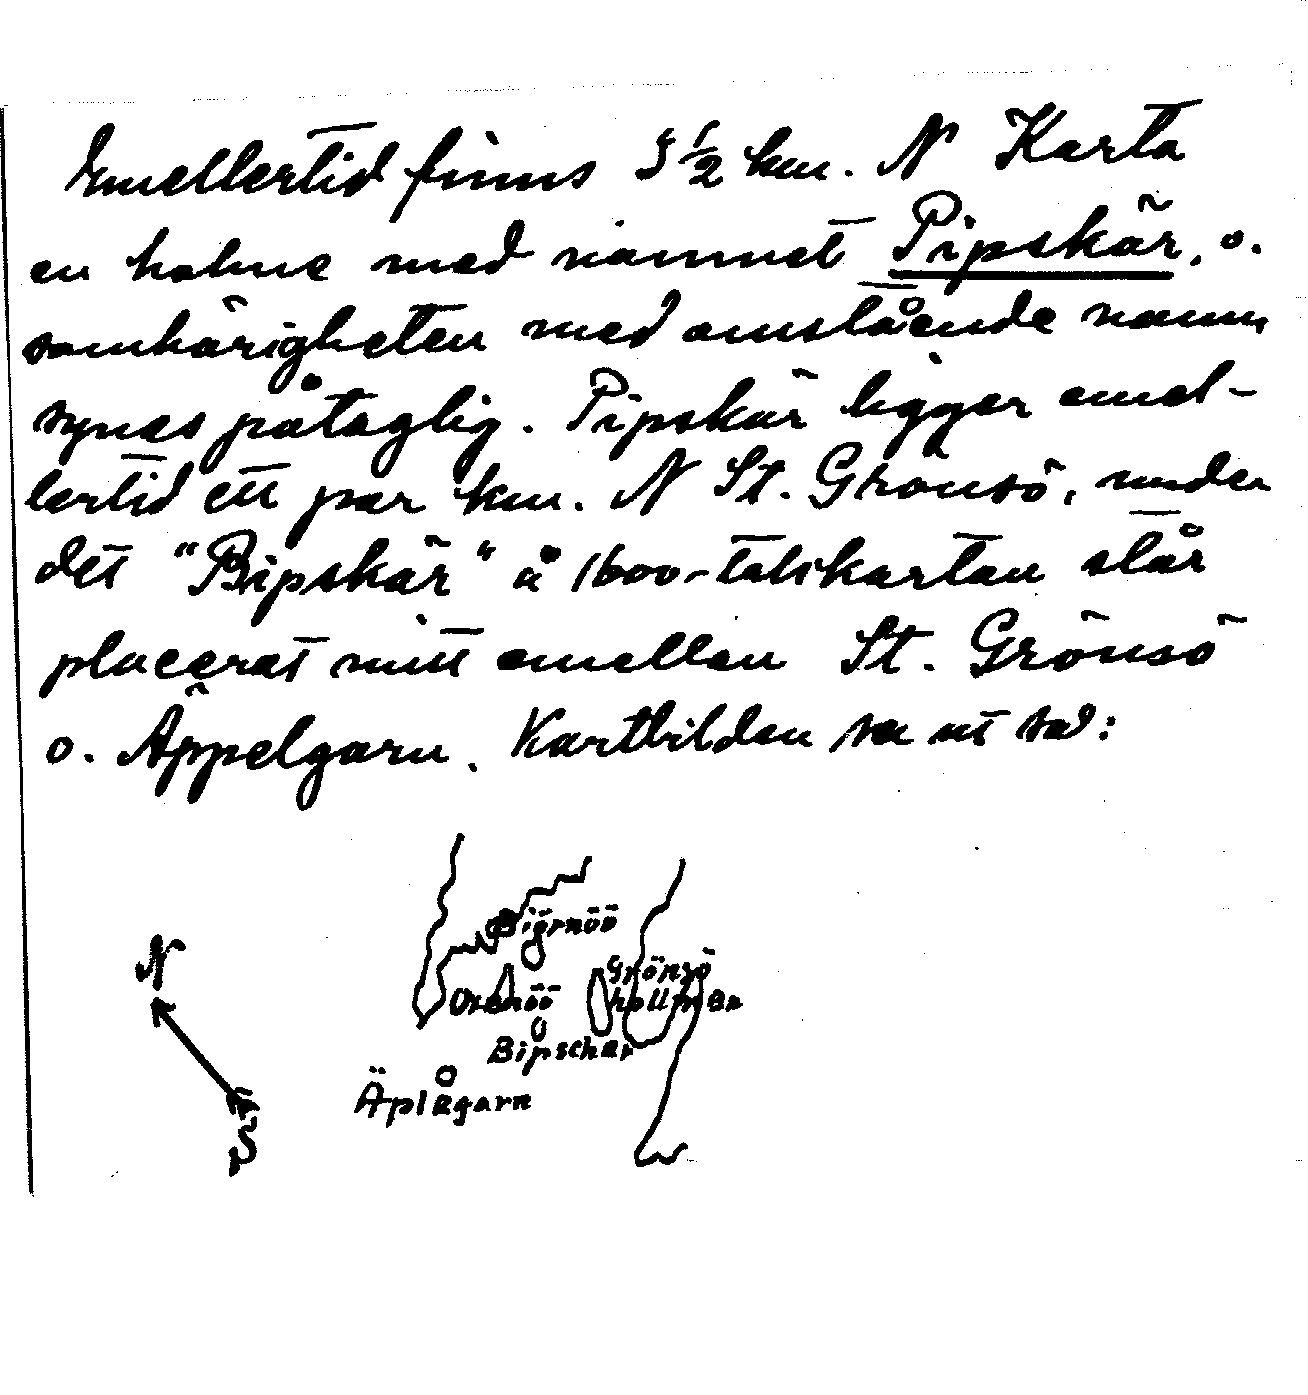 Emellertid finns 3 1/2 km. N Karta
en holme med namnet Pipskär, o.
samhörigheten med omstående namn
synes påtaglig. Pipskär ligger emel-
lertid ett par km. N St. Grönsö, under
det "Bipskär" å 1600-talskartan står
placerat mitt emellan St. Grönsö
o. Äppelgarn. Kartbilden ser ut så:
Biörnöö
N
Grönsö
hollmen
Orenöö
Bipschar
Äplegarn
S